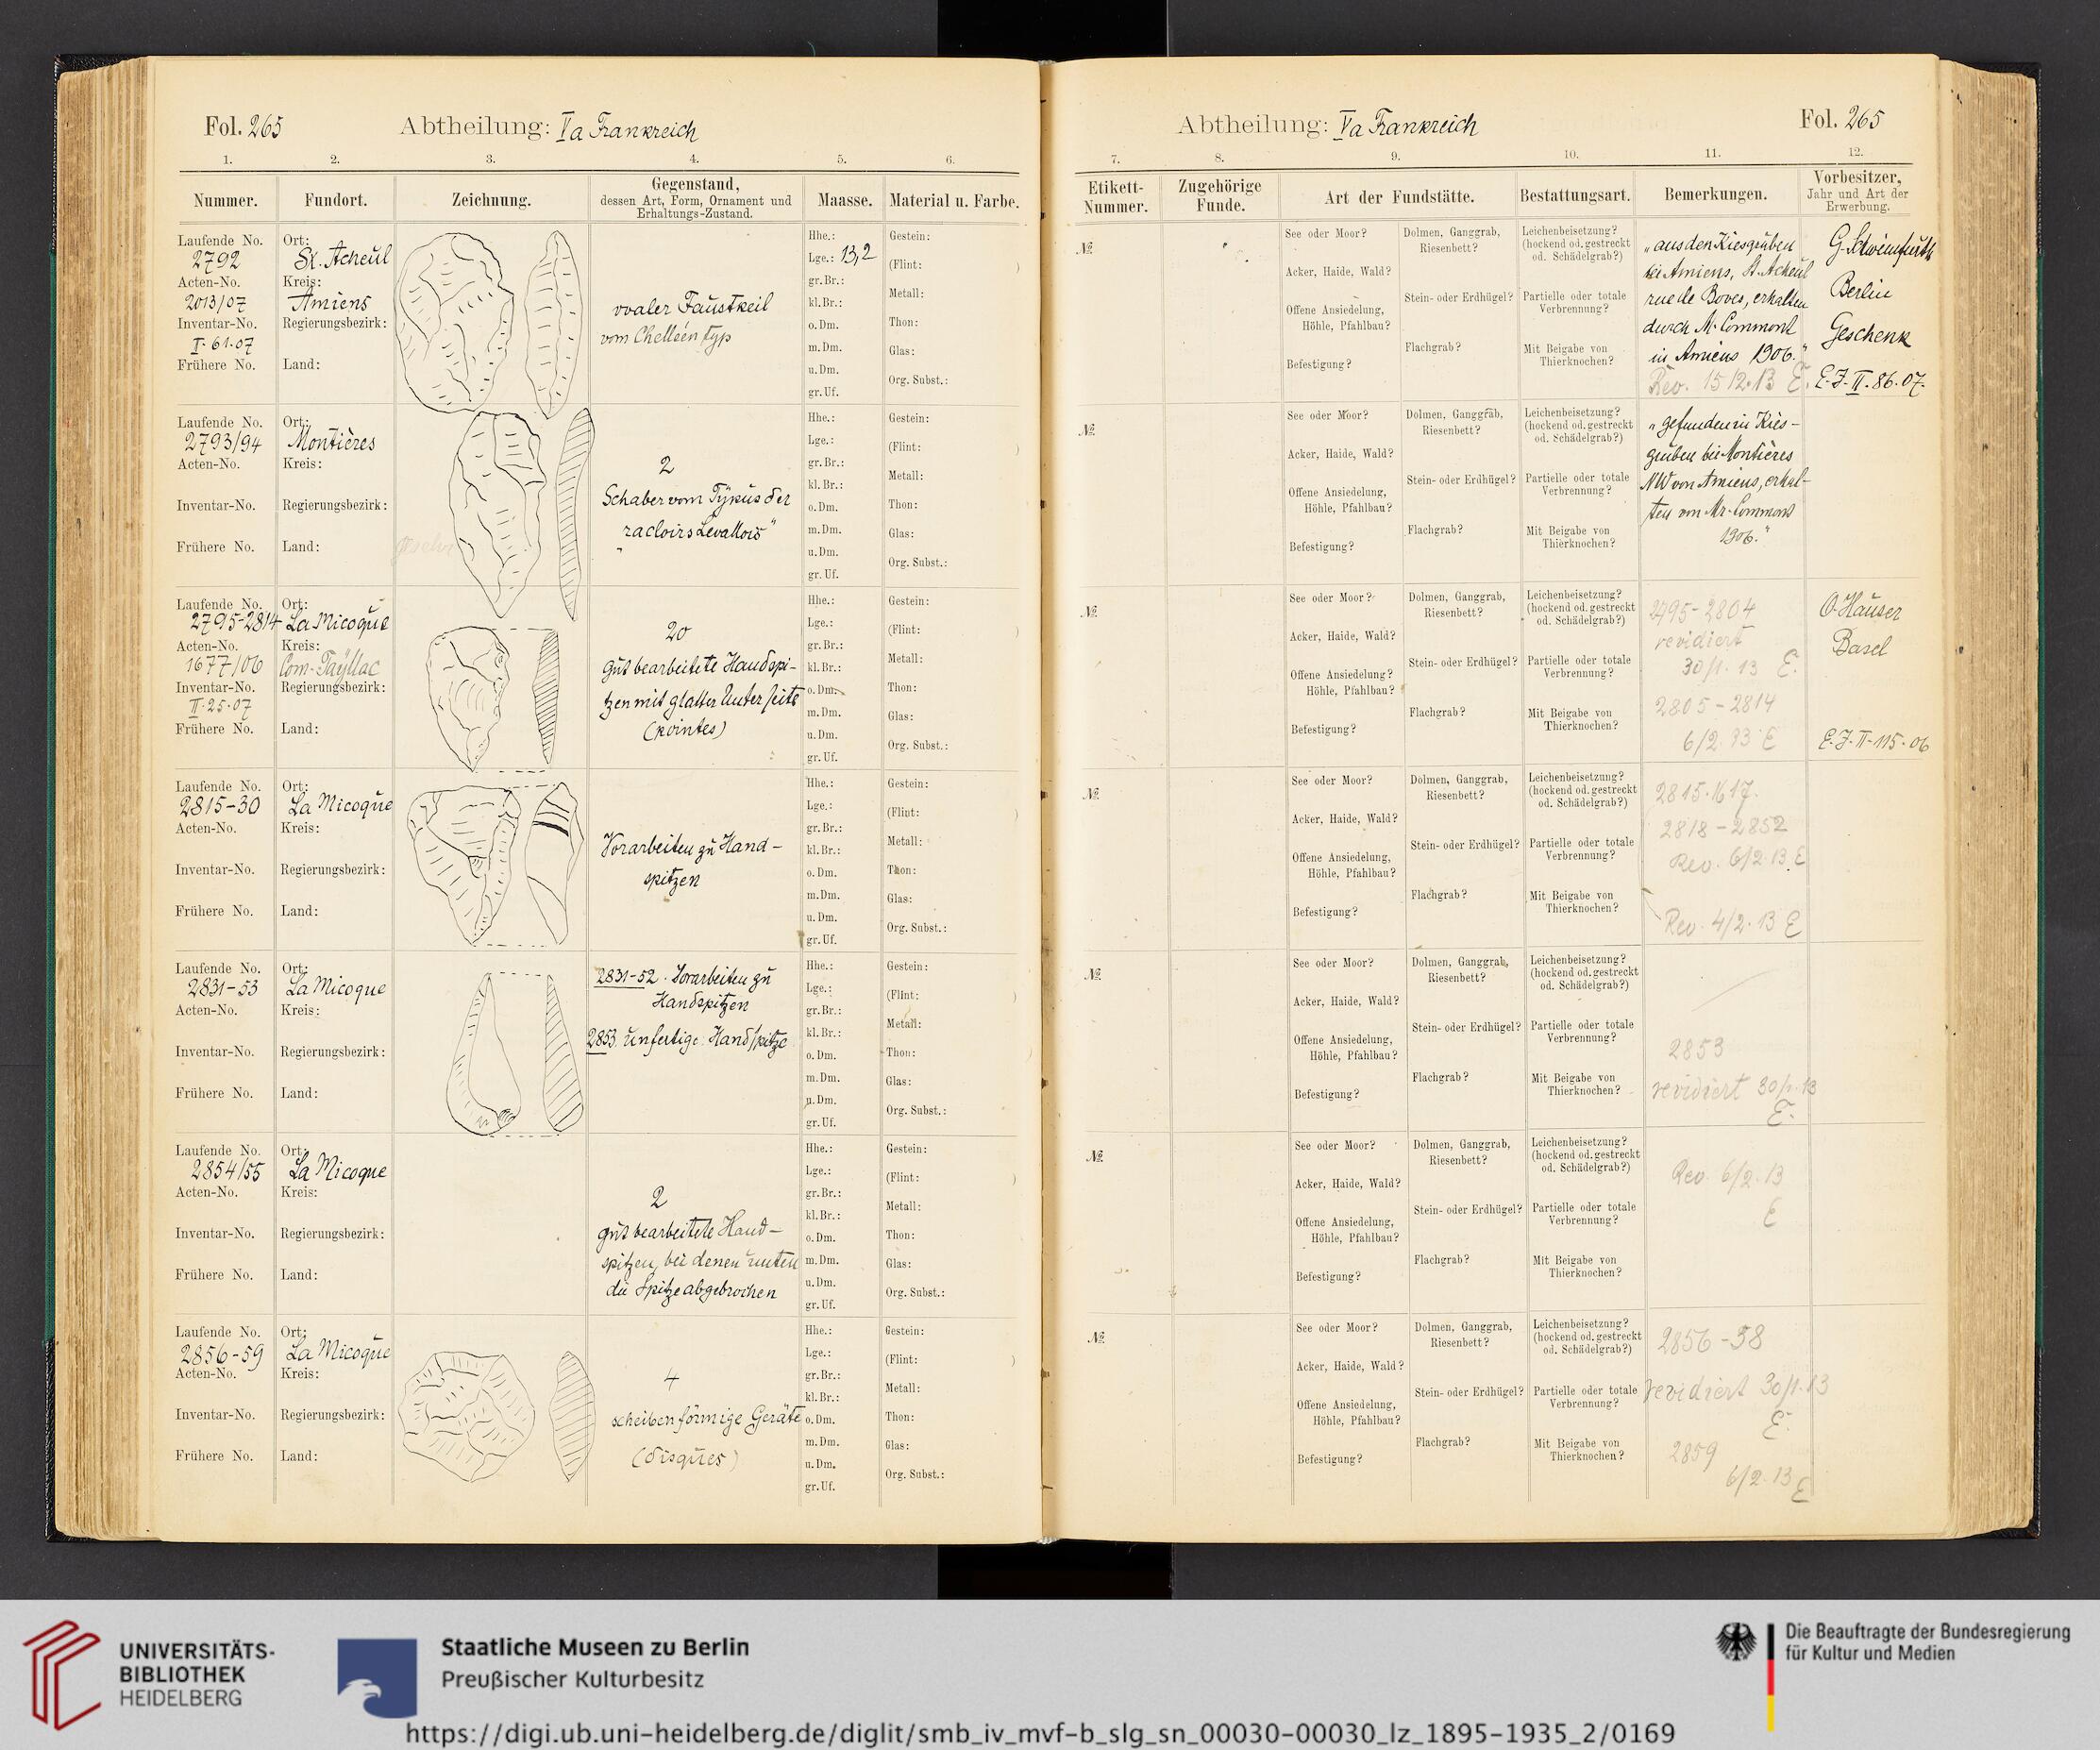 Fol. 265 Abtheilung: Va Frankreich
1. 2. 3. 4. 5. 6.
Nummer. Fundort. Zeichnung. Gegenstand, dessen Art, Form, Ornament und Erhaltungs-Zustand. Maasse. Material u. Farbe.
Laufende No. 2792
Acten-No. 2013/07
Inventar-No. I. 61. 07
Frühere No.
Ort: St. Acheul
Kreis: Amiens
Regierungsbezirk:
Land:
ovaler Faustkeil
vom Chelléen typ
Hhe.:
Lge.: 13,2
gr. Br.:
kl. Br.:
o. Dm.
m. Dm.
u. Dm.
gr. Uf.
Gestein:
(Flint: )
Metall:
Thon:
Glas:
Org. Subst.:
Laufende No. 2793/94
Acten-No.
Inventar-No.
Frühere No.
Ort: Montières
Kreis:
Regierungsbezirk:
Land:
2
Schaber vom Typus der
„racloirs Levallois"
Hhe.:
Lge.:
gr. Br.:
kl. Br.:
o. Dm.
m. Dm.
u. Dm.
gr. Uf.
Gestein:
(Flint: )
Metall:
Thon:
Glas:
Org. Subst.:
Laufende No. 2795-2814
Acten-No. 1677/06
Inventar-No. II. 25. 07
Frühere No.
Ort: La Micoque
Kreis: Com. Tayllac
Regierungsbezirk:
Land:
20
gut bearbeitete Handspi-
tzen mit glatter Unterseite
(pointes)
Hhe.:
Lge.:
gr. Br.:
kl. Br.:
o. Dm.
m. Dm.
u. Dm.
gr. Uf.
Gestein:
(Flint: )
Metall:
Thon:
Glas:
Org. Subst.:
Laufende No. 2815-30
Acten-No.
Inventar-No.
Frühere No.
Ort: La Micoque
Kreis:
Regierungsbezirk:
Land:
Vorarbeiten zu Hand-
spitzen
Hhe.:
Lge.:
gr. Br.:
kl. Br.:
o. Dm.
m. Dm.
u. Dm.
gr. Uf.
Gestein:
(Flint: )
Metall:
Thon:
Glas:
Org. Subst.:
Laufende No. 2831-53
Acten-No.
Inventar-No.
Frühere No.
Ort: La Micoque
Kreis:
Regierungsbezirk:
Land:
2831-52. Vorarbeiten zu
Handspitzen
2853. unfertige Handspitze
Hhe.:
Lge.:
gr. Br.:
kl. Br.:
o. Dm.
m. Dm.
u. Dm.
gr. Uf.
Gestein:
(Flint: )
Metall:
Thon:
Glas:
Org. Subst.:
Laufende No. 2854/55
Acten-No.
Inventar-No.
Frühere No.
Ort: La Micoque
Kreis:
Regierungsbezirk:
Land:
2
gut bearbeitete Hand-
spitzen, bei denen unten
die Spitze abgebrochen
Hhe.:
Lge.:
gr. Br.:
kl. Br.:
o. Dm.
m. Dm.
u. Dm.
gr. Uf.
Gestein:
(Flint: )
Metall:
Thon:
Glas:
Org. Subst.:
Laufende No. 2856-59
Acten-No.
Inventar-No.
Frühere No.
Ort: La Micoque
Kreis:
Regierungsbezirk:
Land:
4
scheibenförmige Geräte
(disques)
Hhe.:
Lge.:
gr. Br.:
kl. Br.:
o. Dm.
m. Dm.
u. Dm.
gr. Uf.
Gestein:
(Flint: )
Metall:
Thon:
Glas:
Org. Subst.:
Abtheilung: Va Frankreich Fol. 265
7. 8. 9. 10. 11. 12.
Etikett-Nummer. Zugehörige Funde. Art der Fundstätte. Bestattungsart. Bemerkungen. Vorbesitzer, Jahr und Art der Erwerbung.
№
See oder Moor?
Acker, Haide, Wald?
Offene Ansiedelung,
Höhle, Pfahlbau?
Befestigung?
Dolmen, Ganggrab,
Riesenbett?
Stein- oder Erdhügel?
Flachgrab?
Leichenbeisetzung?
(hockend od. gestreckt
od. Schädelgrab?)
Partielle oder totale
Verbrennung?
Mit Beigabe von
Thierknochen?
„aus den Kiesgruben
bei Amiens, St. Acheul
rue de Boves, erhalten
durch M. Commont
in Amiens 1906."
Rev. 15/12. 13 E.
G. Schweinfurth
Berlin
Geschenk
E. J. II. 86. 07.
№
See oder Moor?
Acker, Haide, Wald?
Offene Ansiedelung,
Höhle, Pfahlbau?
Befestigung?
Dolmen, Ganggrab,
Riesenbett?
Stein- oder Erdhügel?
Flachgrab?
Leichenbeisetzung?
(hockend od. gestreckt
od. Schädelgrab?)
Partielle oder totale
Verbrennung?
Mit Beigabe von
Thierknochen?
„gefunden in Kies-
gruben bei Montières
NW von Amiens, erhal-
ten von Mr. Commont
1906."
№
See oder Moor?
Acker, Haide, Wald?
Offene Ansiedelung?
Höhle, Pfahlbau?
Befestigung?
Dolmen, Ganggrab,
Riesenbett?
Stein- oder Erdhügel?
Flachgrab?
Leichenbeisetzung?
(hockend od. gestreckt
od. Schädelgrab?)
Partielle oder totale
Verbrennung?
Mit Beigabe von
Thierknochen?
2795-2804
revidiert
30/1. 13 E.
2805-2814
6/2. 13 E
O. Hauser
Basel
E. J. II. 115. 06
№
See oder Moor?
Acker, Haide, Wald?
Offene Ansiedelung,
Höhle, Pfahlbau?
Befestigung?
Dolmen, Ganggrab,
Riesenbett?
Stein- oder Erdhügel?
Flachgrab?
Leichenbeisetzung?
(hockend od. gestreckt
od. Schädelgrab?)
Partielle oder totale
Verbrennung?
Mit Beigabe von
Thierknochen?
2815. 16 17.
2818-2852
Rev. 6/2. 13. E
Rev. 4/2. 13 E
№
See oder Moor?
Acker, Haide, Wald?
Offene Ansiedelung,
Höhle, Pfahlbau?
Befestigung?
Dolmen, Ganggrab,
Riesenbett?
Stein- oder Erdhügel?
Flachgrab?
Leichenbeisetzung?
(hockend od. gestreckt
od. Schädelgrab?)
Partielle oder totale
Verbrennung?
Mit Beigabe von
Thierknochen?
2853
revidiert 30/1. 13
E.
№
See oder Moor?
Acker, Haide, Wald?
Offene Ansiedelung,
Höhle, Pfahlbau?
Befestigung?
Dolmen, Ganggrab,
Riesenbett?
Stein- oder Erdhügel?
Flachgrab?
Leichenbeisetzung?
(hockend od. gestreckt
od. Schädelgrab?)
Partielle oder totale
Verbrennung?
Mit Beigabe von
Thierknochen?
Rev. 6/2. 13
E
№
See oder Moor?
Acker, Haide, Wald?
Offene Ansiedelung,
Höhle, Pfahlbau?
Befestigung?
Dolmen, Ganggrab,
Riesenbett?
Stein- oder Erdhügel?
Flachgrab?
Leichenbeisetzung?
(hockend od. gestreckt
od. Schädelgrab?)
Partielle oder totale
Verbrennung?
Mit Beigabe von
Thierknochen?
2856-58
revidiert 30/1. 13
E.
2859
6/2. 13 E
UNIVERSITÄTS-
BIBLIOTHEK
HEIDELBERG
Staatliche Museen zu Berlin
Preußischer Kulturbesitz
Die Beauftragte der Bundesregierung
für Kultur und Medien
https://digi.ub.uni-heidelberg.de/diglit/smb_iv_mvf-b_slg_sn_00030-00030_lz_1895-1935_2/0169